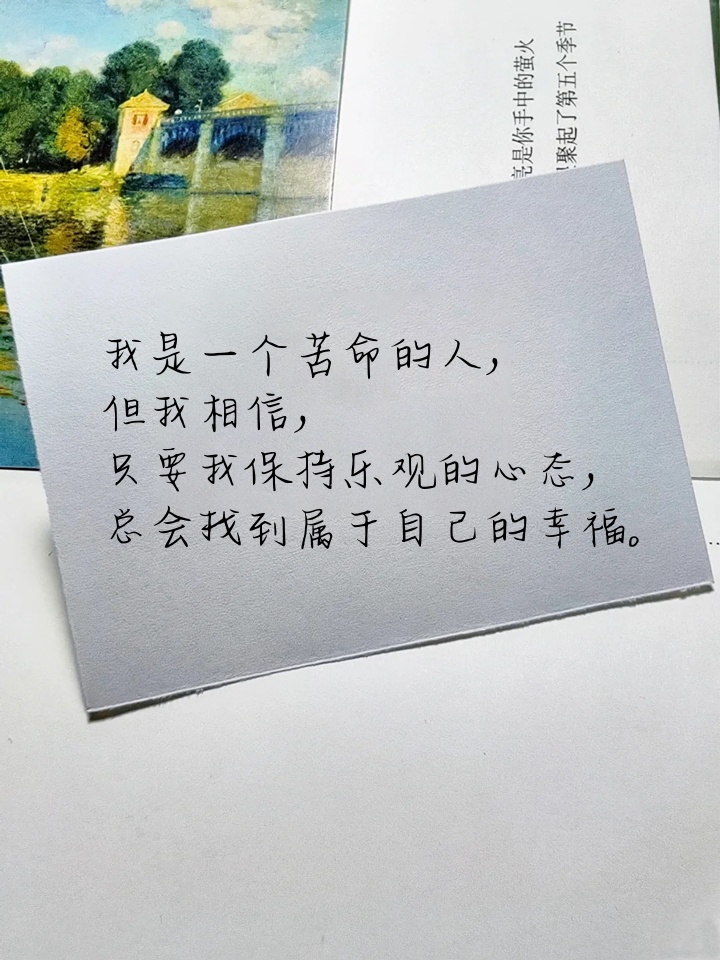 我是一个苦命的人，
但我相信，
只要我保持乐观的心态，
总会找到属于自己的幸福。
是你手中的萤火
聚起了第五个季节